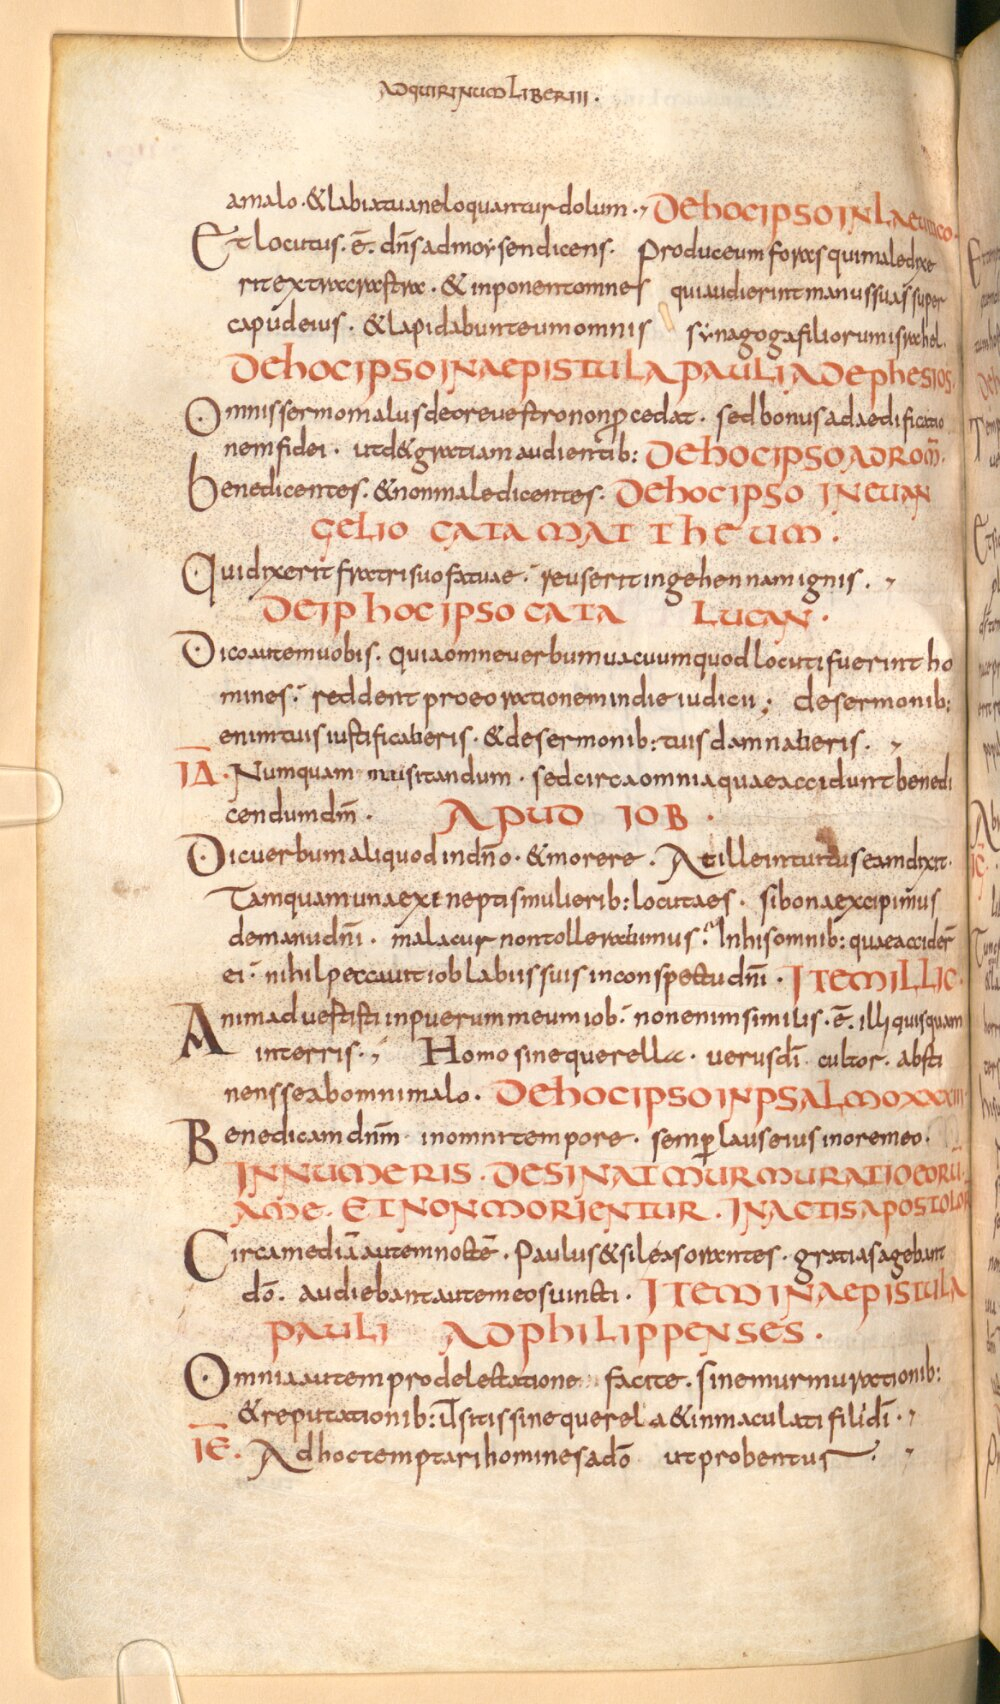 AD QUIRINUM LIBER III.
a malo. & labia tua ne loquantur dolum. DE HOC IPSO IN LAEUITICO.
Et locutus. ē. dn̄s ad moysen dicens. Produc eum foras qui maledixe
rit extra castra. & inponent omnes qui audierint manus suas super
caput eius. & lapidabunt eum omnis synagoga filiorum israhel.
DE HOC IPSO IN AEPISTULA PAULI AD EPHESIOS.
Omnis sermo malus de ore uestro non ꝓcedat. sed bonus ad aedificatio
nem fidei. ut d& gratiam audientib: DE HOC IPSO AD ROM̄.
benedicentes. & non maledicentes. DE HOC IPSO IN EUAN
GELIO CATA MATTHEUM.
Qui dixerit fratri suo fatuae. reus erit in gehennam ignis.
DE IP HOC IPSO CATA LUCAN.
Dico autem uobis. quia omne uerbum uacuum quod locuti fuerint ho
mines. reddent pro eo rationem in die iudicii; de sermonib:
enim tuis iustificaberis. & de sermonib: tuis damnaberis.
IΔ. Numquam musitandum. sed circa omnia quae accidunt benedi
cendum dm̄. APUD IOB.
Dic uerbum aliquod in dn̄o. & morere. At ille intuitus eam dixit.
Tamquam una ex ineptis mulierib: locuta es. si bona excipimus
de manu dn̄i. mala cur non tollerabimus. In his omnib: quae acciderr̄
ei. nihil peccauit iob labiis suis in conspectu dn̄i. ITEM ILLIC.
Animaduestisti in puerum meum iob. non enim similis. ē. illi quisquam
in terris. Homo sine querella. uerus dī cultor. absti
nens se ab omni malo. DE HOC IPSO IN PSALMO XXXIII
Benedicam dnm̄ in omni tempore. semꝑ laus eius in ore meo.
IN NUMERIS. DESINAT MURMURATIO EORŪ.
A ME. ET NON MORIENTUR. IN ACTIS APOSTOLOR
Circa mediā autem noctē. Paulus & sileas orantes. gratias agebant
dō. audiebant autem eos uincti. ITEM IN AEPISTULA
PAULI AD PHILIPPENSES.
Omnia autem pro delectatione facite. sine murmurationib:
& reputationib: ut sitis sine querela & inmaculati filii dī.
IE. Ad hoc temptari homines a dō ut probentur.